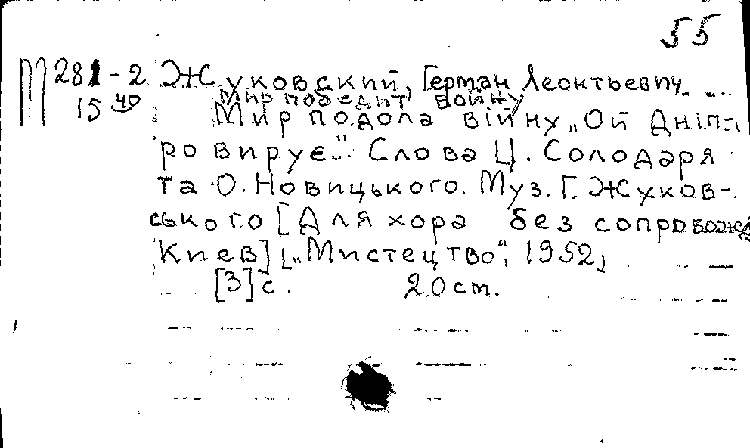 55
М 281-2 Жуковский, Герман Леонтьевич
15 40 Мир победит войну
Мир подола війну "Ой Дніп-
ро вирує". Слова Ц. Солодаря
та О. Новицького. Муз. Г. Жуков-
ського [Для хора без сопровожд
Киев] ["Мистецтво", 1952]
[3] с. 20 cm.